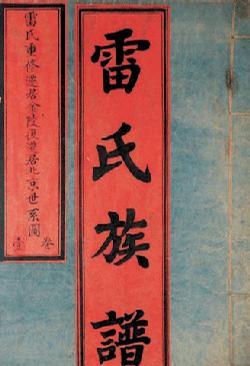 雷氏族譜
雷氏重修遷居金陵復遷居北京世系圖
卷壹